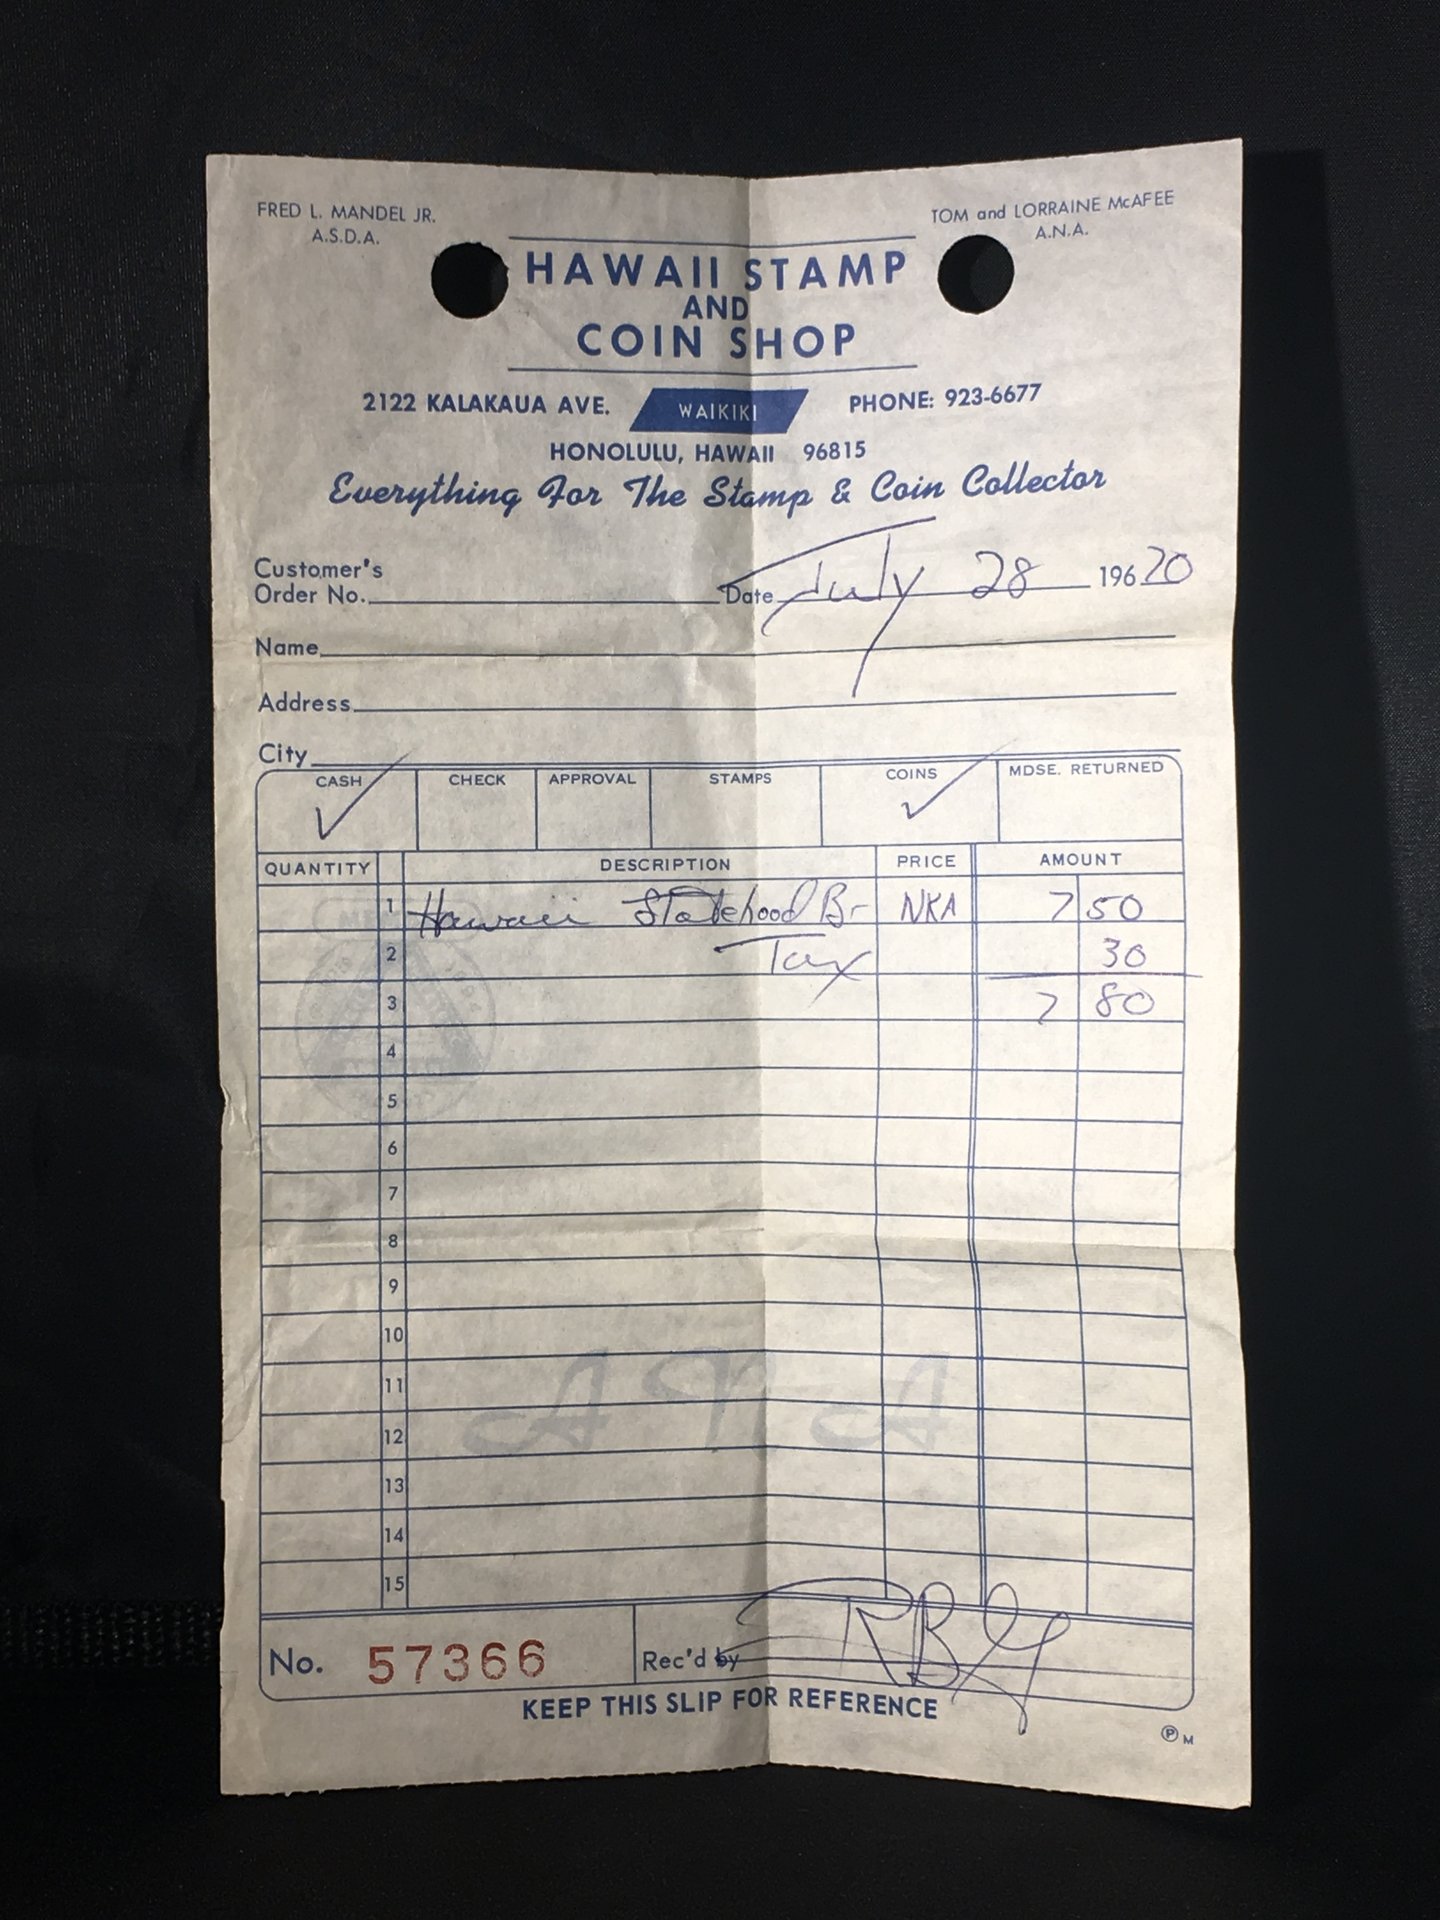 FRED L. MANDEL JR.
A.S.D.A.
TOM and LORRAINE McAFEE
A.N.A.
HAWAII STAMP
AND
COIN SHOP
2122 KALAKAUA AVE. WAIKIKI PHONE: 923-6677
HONOLULU, HAWAII 96815
Everything For The Stamp & Coin Collector
Customer's
Order No. Date July 28 196 70
Name
Address
City
CASH ✓ CHECK APPROVAL STAMPS COINS ✓ MDSE. RETURNED
QUANTITY DESCRIPTION PRICE AMOUNT
1 Hawaii Statehood Br NKA 7 50
2 Tax 30
3 7 80
4
5
6
7
8
9
10
11
12
13
14
15
ANA
No. 57366 Rec'd by
KEEP THIS SLIP FOR REFERENCE
Ⓟ M